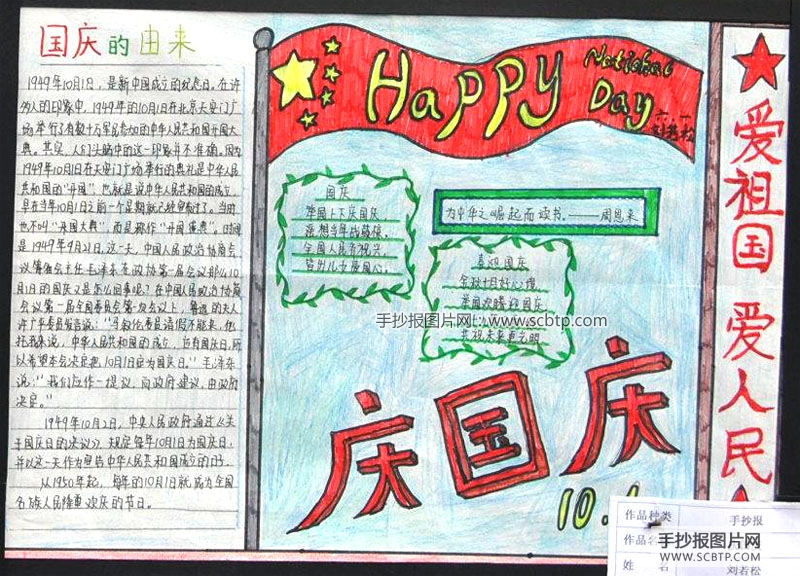 国庆的由来
1949年10月1日，是新中国成立的纪念日。在许
多人的印象中，1949年的10月1日在北京天安门广
场举行了有数十万军民参加的中华人民共和国开国大
典。其实，人们头脑中的这一印象并不准确。因为
1949年10月1日在天安门广场举行的典礼是中华人民
共和国的
也就是说中华人民共和国的成立，
早在当年10月1日之前一个星期就已经宣布过了。当时
也不叫"开国大典"，而是称作"开国盛典"。时间
是1949年9月21日，这一天，中国人民政治协商会
议筹备会主任毛泽东在政协第一届会议
那么10
月1日的国庆又是怎么回事呢？在中国人民政治协商
会议第一届全国委员会第一次会议上，鲁迅的夫人
许广平委员
说："马叙伦委员请假不能来，他
托我来说，中华人民共和国的成立，应有国庆日，所
以希望本会决定把10月1日定为国庆日。"毛泽东
说："我们应作一提议，向政府建议，由政府
决定。"
1949年10月2日，中央人民政府通过《关
于国庆日的决议》，规定每年10月1日为国庆日，
并以这一天作为宣告中华人民共和国成立的日子。
从1950年起，每年的10月1日就成为全国
各族人民隆重欢庆的节日。
Happy National
Day
六、一
刘若松
国庆
举国上下庆国庆，
全国人民齐祝兴，
为中华之崛起而读书。——周恩来
喜迎国庆
金秋十月好心情
举国欢腾迎国庆
手抄报图片网：www.scbtp.com
共祝未来更光明
庆国庆
10.1
爱祖国 爱人民
作品种类 手抄报
作品名
手抄报图片网
WWW.SCBTP.COM
姓 名 刘若松